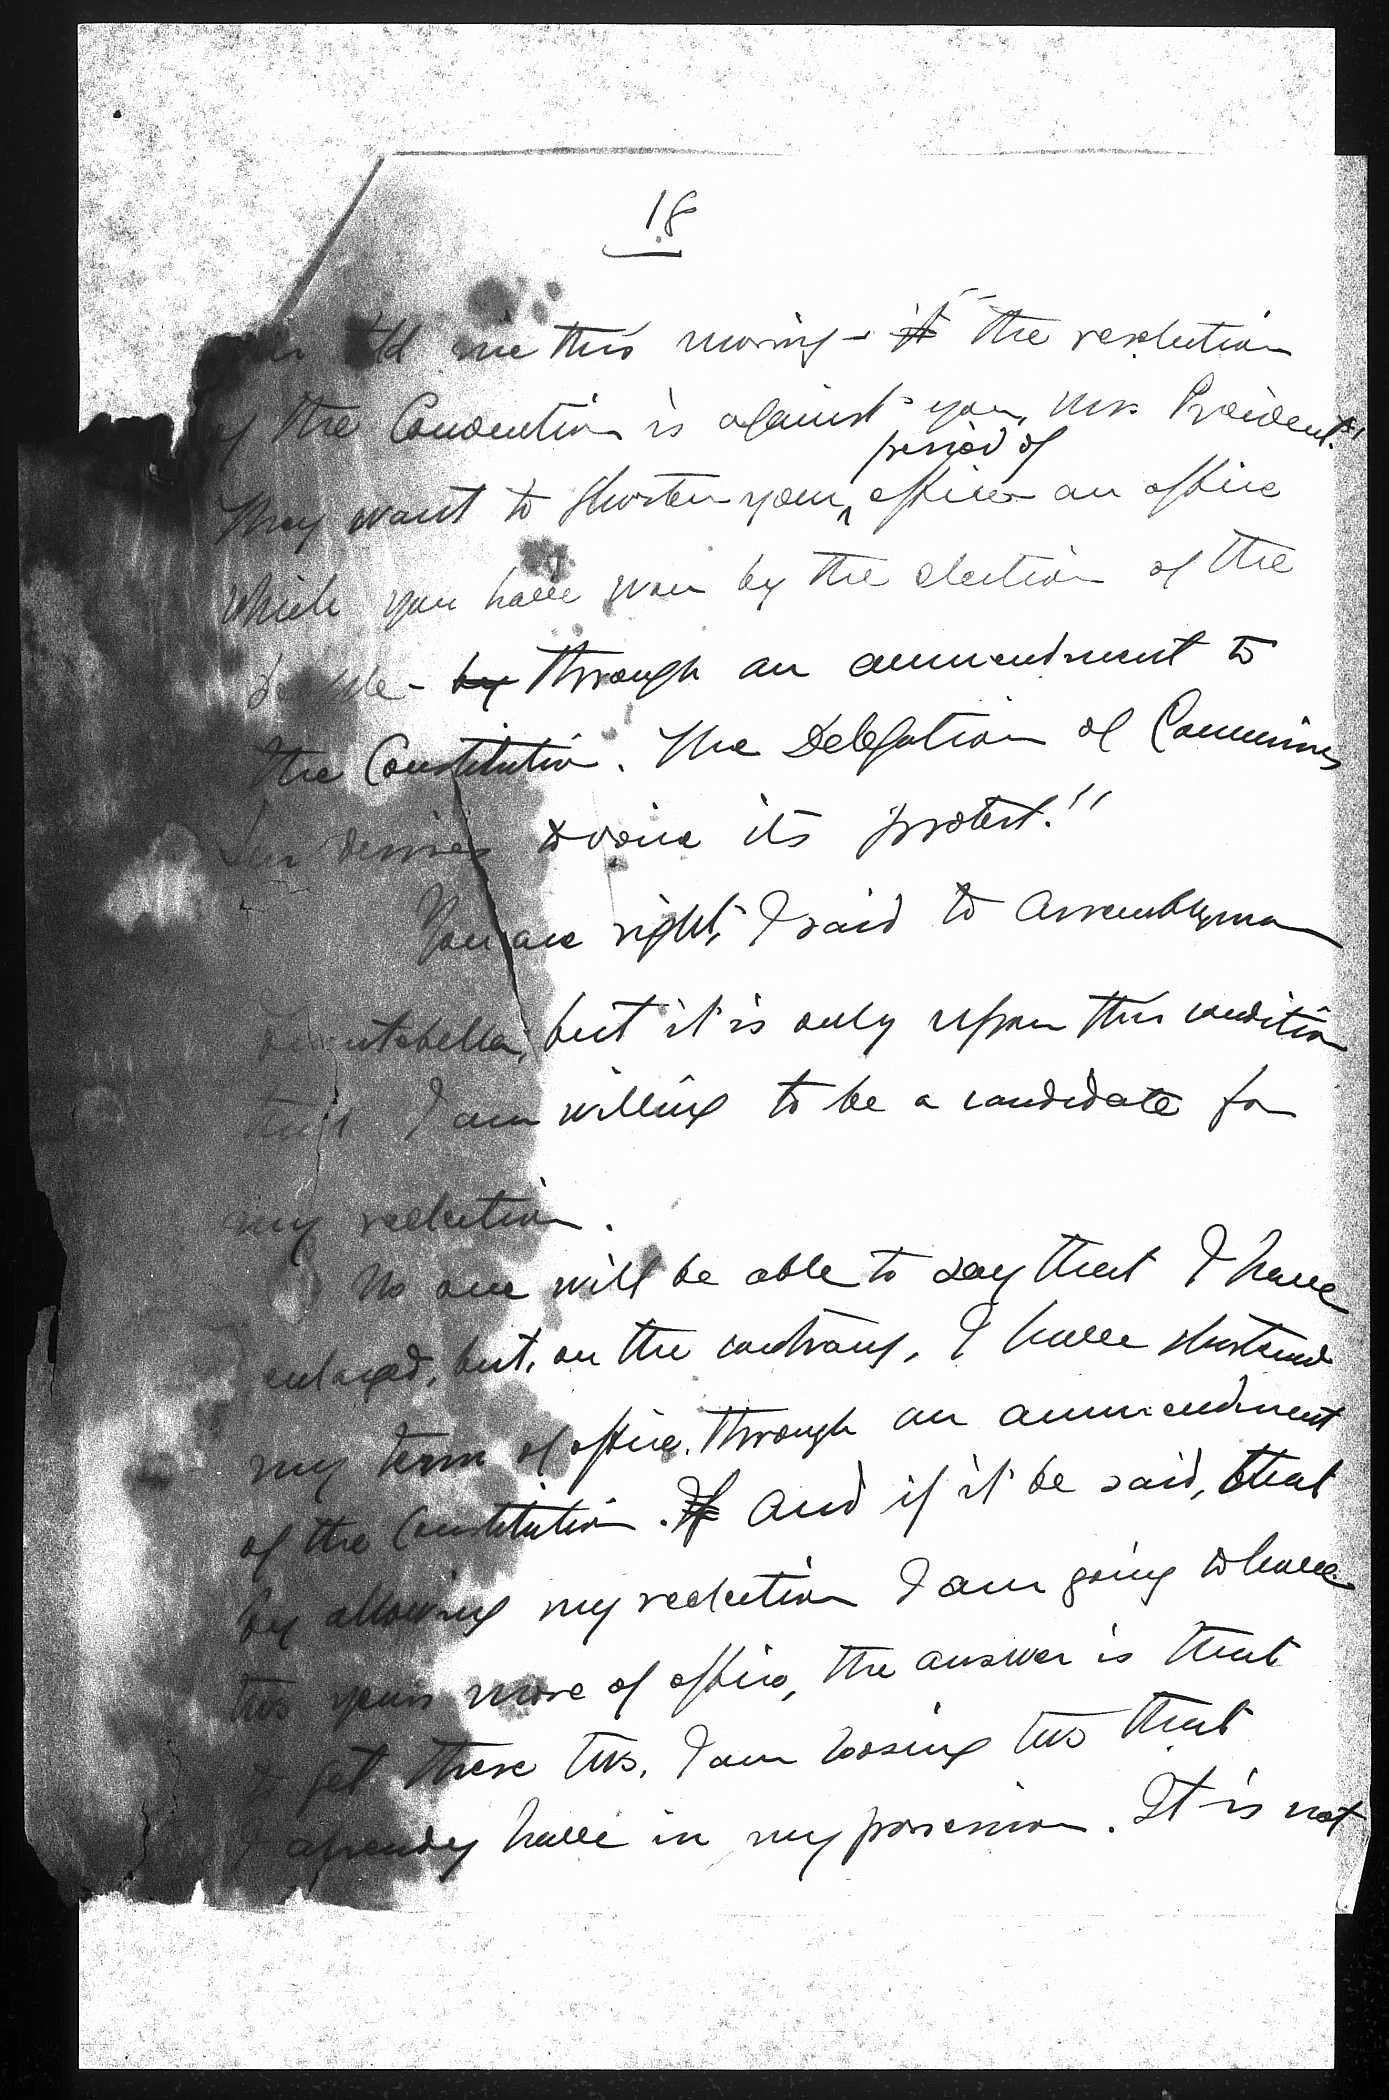 18
told me this morning - it "the resolution
of the Convention is against you, Mr. President."
They want to shorten your period of office - an office
which you have won by the election of the
people - by through an ammendment to
the Constitution. The Delegation of Camarines
Sur desires to voice its protest."
You are right, I said to Assemblyman
Fuentebella, but it is only upon this condition
that I am willing to be a candidate for
my reelection.
No one will be able to say that I have
enlarged, but, on the contrary, I have shortened
my term of office through an ammendment
of the Constitution. If And if it be said, that
by allowing my reelection I am going to have
two years more of office, the answer is that
I get these two, I am loosing two that
I already have in my possession. It is not